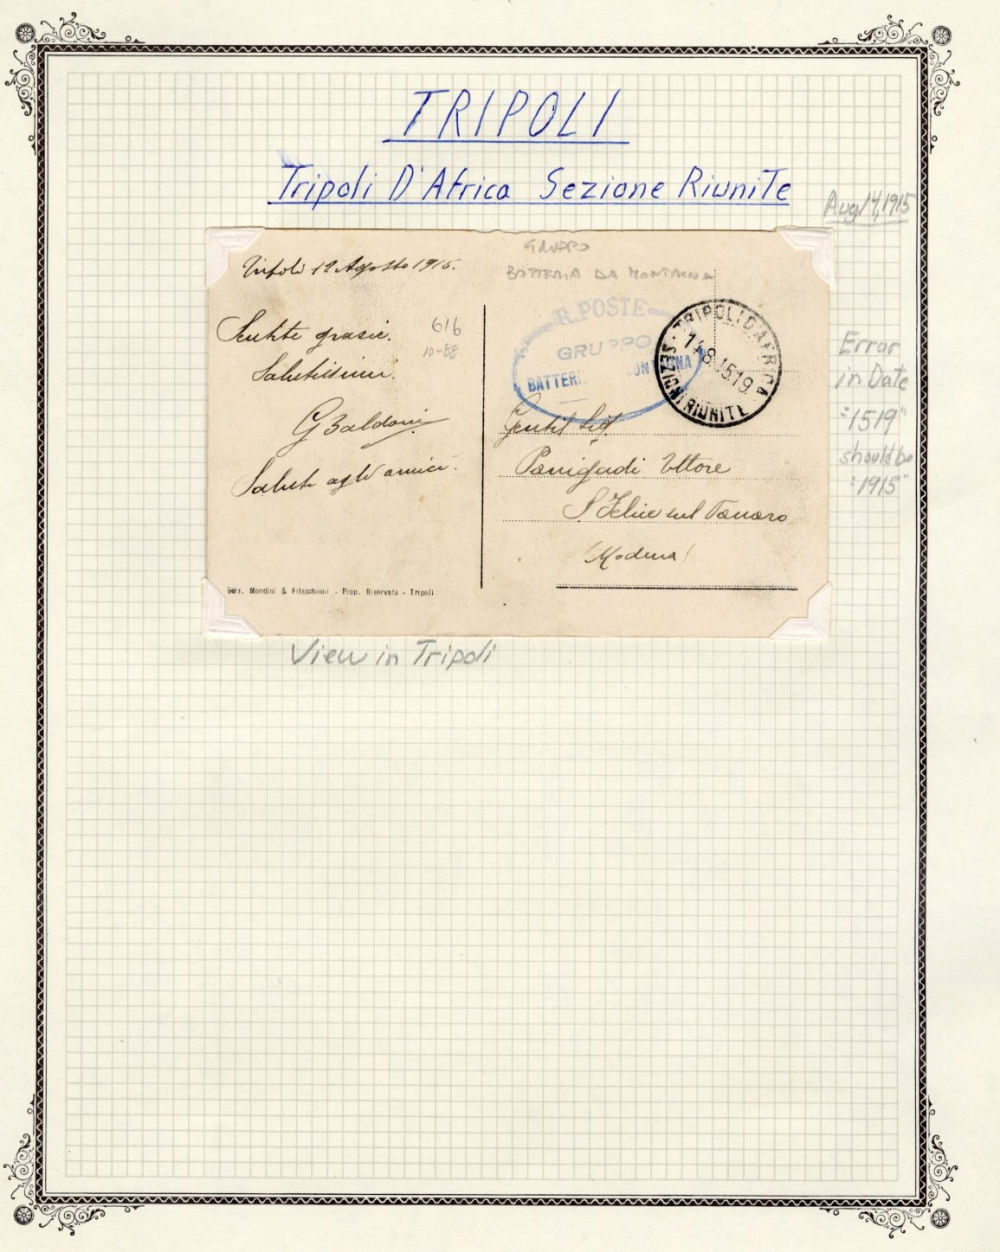 TRIPOLI
Tripoli D'Africa Sezione Riunite
Aug 14, 1915
Tripoli 12 Agosto 1915.
GRUPPO
BATTERIA DA MONTAGNA
616
10-EE
grazie.
Salutissimi
G Baldoni
Saluti agli amici.
R. POSTE
GRUPPO
BATTERI ONTANA
TRIPOLI D'AFRICA
SEZIONI RIUNITE
14 8 1519
Gentil Sig.
Panigadi Ettore
S Felice sul Panaro
(Modena)
Mondini & - Prop. Riservata - Tripoli
Error
in Date
"1519"
should be
"1915"
View in Tripoli